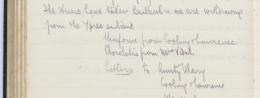 The Huns have taken Bailleul & we are withdrawing
from the Ypres salient
Uniform from Cooling & Lawrence
Chocolates from Mrs
Letters to Aunty Mary
Cooling Lawrence